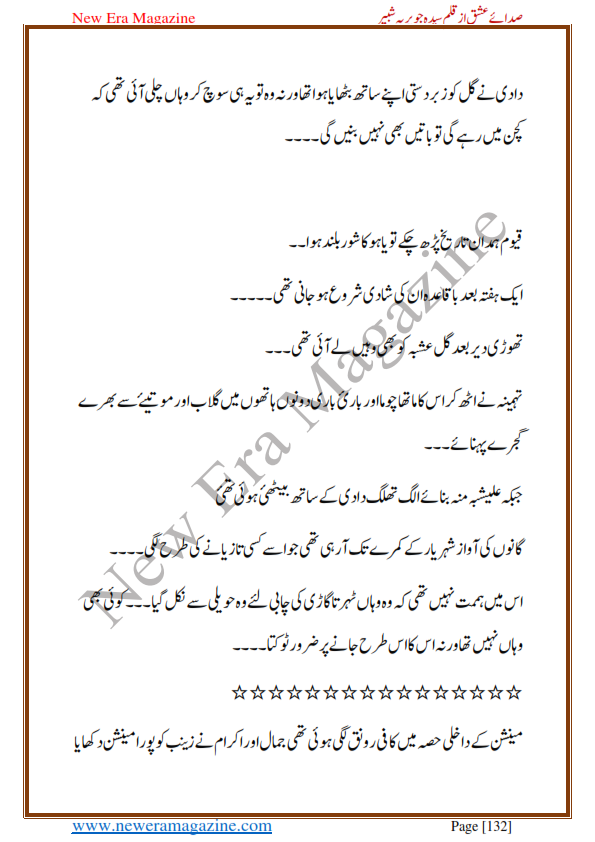 New Era Magazine صدائے عشق از قلم سیدہ جویریہ شبیر
دادی نے گل کو زبردستی اپنے ساتھ بٹھایا ہوا تھا ورنہ وہ تو یہ ہی سوچ کر وہاں چلی آئی تھی کہ
کچن میں رہے گی تو باتیں بھی نہیں بنیں گی۔۔۔۔
قیوم ہمدان تاریخ پڑھ چکے تو یاہو کا شور بلند ہوا۔۔
ایک ہفتہ بعد باقاعدہ ان کی شادی شروع ہو جانی تھی۔۔۔۔۔
تھوڑی دیر بعد گل عشبہ کو بھی وہیں لے آئی تھی۔۔۔
تہمینہ نے اٹھ کر اس کا ماتھا چوما اور بارئ باری دونوں ہاتھوں میں گلاب اور موتیئے سے بھرے
گجرے پہنائے۔۔۔
جبکہ علیشبہ منہ بنائے الگ تھلگ دادی کے ساتھ بیٹھئ ہوئی تھئ
گانوں کی آواز شہریار کے کمرے تک آرہی تھی جو اسے کسی تازیانے کی طرح لگی۔۔۔۔
اس میں ہمت نہیں تھی کہ وہ وہاں ٹہرتا گاڑی کی چابی لئے وہ حویلی سے نکل گیا۔۔۔کوئی بھی
وہاں نہیں تھا ورنہ اس کا اس طرح جانے پر ضرور ٹوکتا۔۔۔۔
☆☆☆☆☆☆☆☆☆☆☆☆☆☆☆☆
مینشن کے داخلی حصہ میں کافی رونق لگی ہوئی تھی جمال اور اکرام نے زینب کو پورا مینشن دکھایا
New Era Magazine
www.neweramagazine.com Page [132]